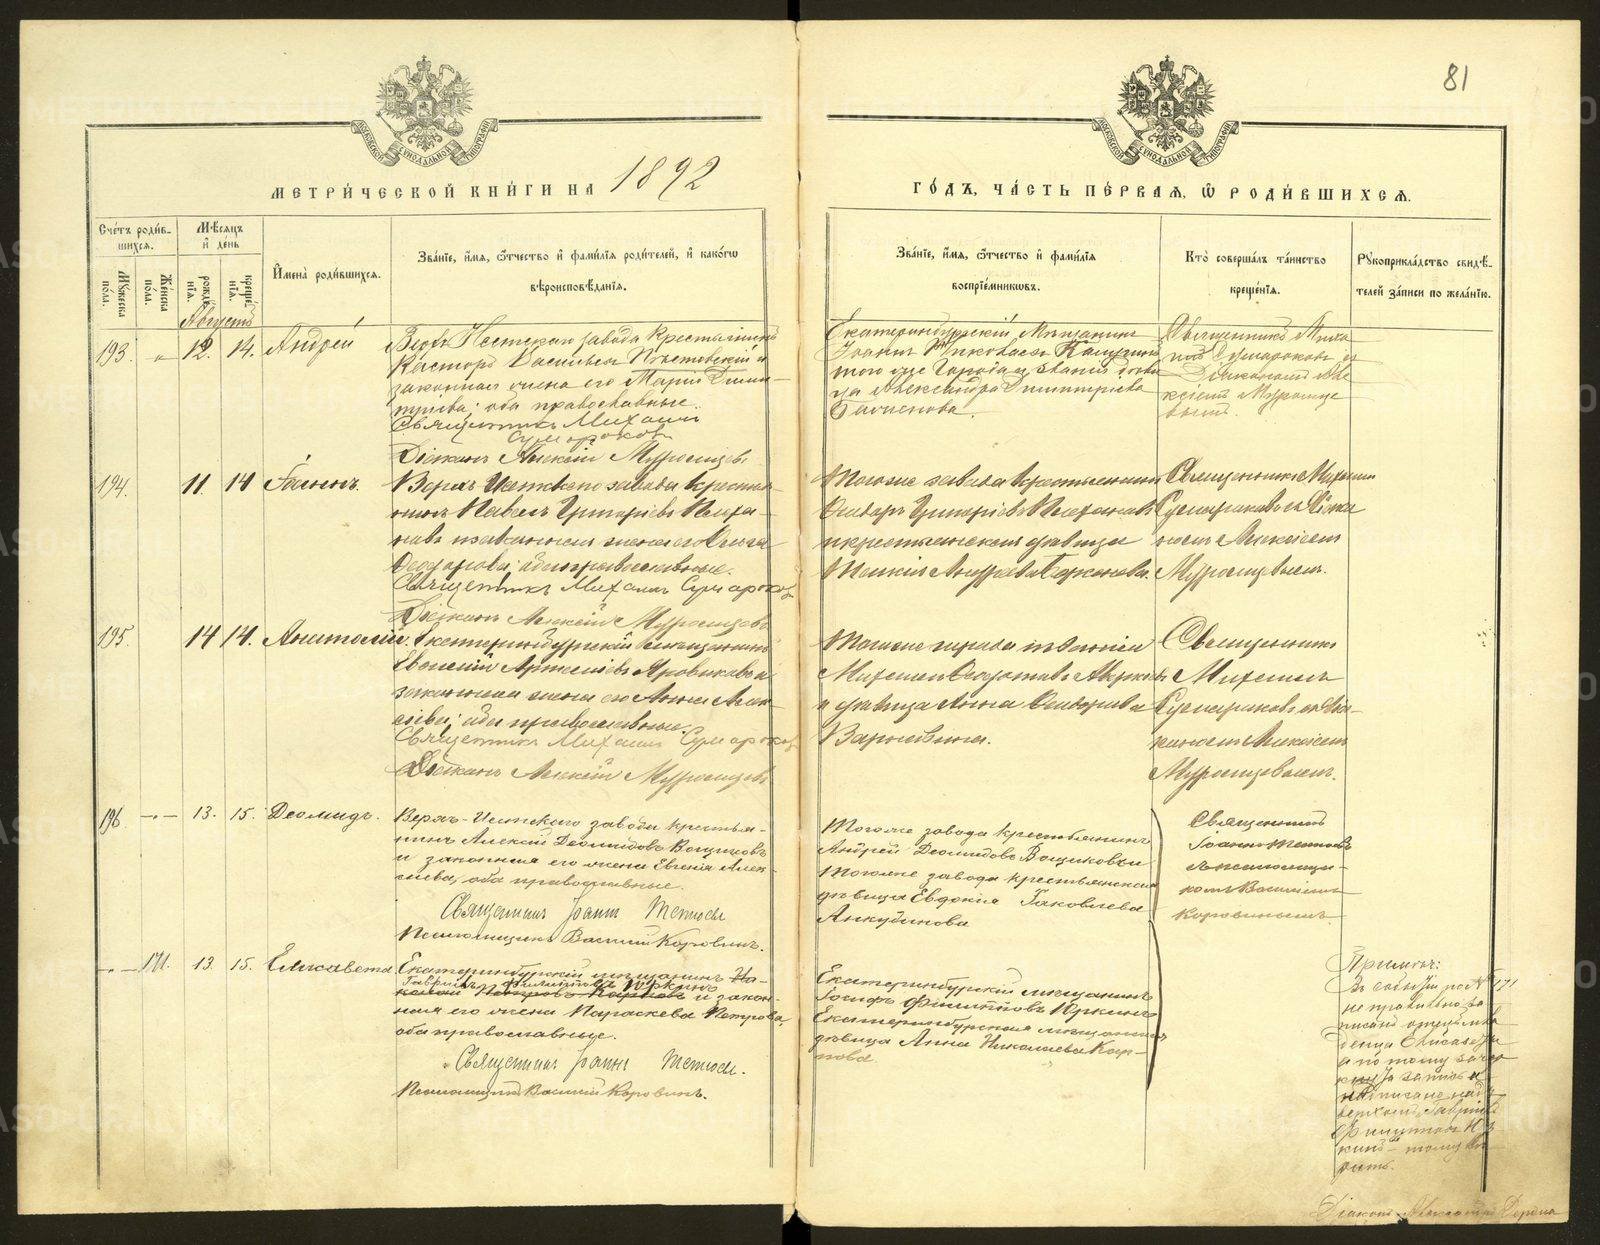 81
МЕТРИ́ЧЕСКОЙ КНИ́ГИ НА 1892
ГО́ДЪ, ЧА́СТЬ ПЕ́РВАѦ, Ѽ РОДИ́ВШИХСѦ.
Сче́тъ роди́в-
шихся.
Мѣ́сяцъ
и҆ де́нь
Мꙋ́жеска
по́ла.
Же́нска
по́ла.
рожде́-
нїя.
креще́-
нїя.
И҆мена̀ роди́вшихся.
Зва́нїе, и҆́мя, ѻ҆́тчество и҆ фами́лїя роди́телей, и҆ како́гѡ
вѣроисповѣ́данїя.
Зва́нїе, и҆́мя, ѻ҆́тчество и҆ фами́лїя
воспрїе́мникѡвъ.
Кто̀ соверша́лъ та́инство
креще́нїя.
Рꙋкоприкла́дство свидѣ́-
телей за́писи по жела́нїю.
Августъ
193. „ 12. 14. Андрей
Верхъ Исетскаго завода крестьянинъ
Касторъ Васильевъ
законная жена его Марія Дими-
тріева; оба православные.
Священникъ Михаилъ
Сумароковъ
Діаконъ Алексій Мурошцевъ
Екатеринбургскій мѣщанинъ
Іоаннъ Николаевъ
того же города и званія дѣви
ца Александра Димитріева
Священникъ Миха
илъ Сумароковъ съ
Діакономъ Але
ксіемъ Мурошце
вымъ.
194. 11. 14 Іоаннъ.
Верхъ Исетскаго завода крестья-
нинъ Павелъ Григорьевъ Плеха-
новъ и законная жена его Ольга
Ѳеодорова; оба православные.
Священникъ Михаилъ Сумароков
Діаконъ Алексій Мурошцевъ
Тогоже завода крестьянинъ
Ѳеодоръ Григорьевъ Плехановъ
и крестьянская дѣвица
Таисія Андреева
Священникъ Михаилъ
Сумароковъ съ Діако
номъ Алексіемъ
Мурошцевымъ.
195. 14 14. Анатолій.
Екатеринбургскій мѣщанинъ
Евгеній Артеміевъ Яровиковъ и
законная жена его Анна Алек-
сіева; оба православные.
Священникъ Михаилъ Сумароков
Діаконъ Алексій Мурошцевъ
Тогоже города и званія
Михаилъ Ѳеодотовъ
и дѣвица Анна Ѳеодорова
Священникъ
Михаилъ
Сумароковъ съ Діа-
кономъ Алексіемъ
Мурошцевымъ.
196 —„— 13. 15. Деомидъ.
Верхъ-Исетскаго завода крестья-
нинъ Алексій Деомидовъ Вощиковъ
и законная его жена Евгенія Алек-
сіева, оба православные.
Священникъ Іоаннъ Тетюевъ
Псаломщикъ Василій Коровинъ.
Тогоже завода крестьянинъ
Андрей Деомидовъ Вощиковъ и
тогоже завода крестьянская
дѣвица Евдокія Іаковлева
Анкудинова
Священникъ
Іоаннъ Тетюевъ
съ псаломщи-
комъ Василіемъ
Коровинымъ
—„— 171. 13. 15. Елисавета
Екатеринбургскій мѣщанинъ Ни-
Гавріилъ Филипповъ Юркинъ
колай Петровъ Карповъ и закон-
ная его жена Параскева Петрова,
оба православные.
Священникъ Іоаннъ Тетюевъ.
Псаломщикъ Василій Коровинъ.
Екатеринбургскій мѣщанинъ
Іосифъ Филипповъ Юркинъ
Екатеринбургская мѣщанская
дѣвица Анна Николаева Кар-
пова
Примѣч:
Въ событіи по № 171
неправильно за
писано отцъ мла
денца Елисаветы
а потому зачер
кнуто записью
написано на
верхомъ Гавріилъ
Филипповъ Юр
кинъ — тому вѣ
рить.
Діаконъ Александръ